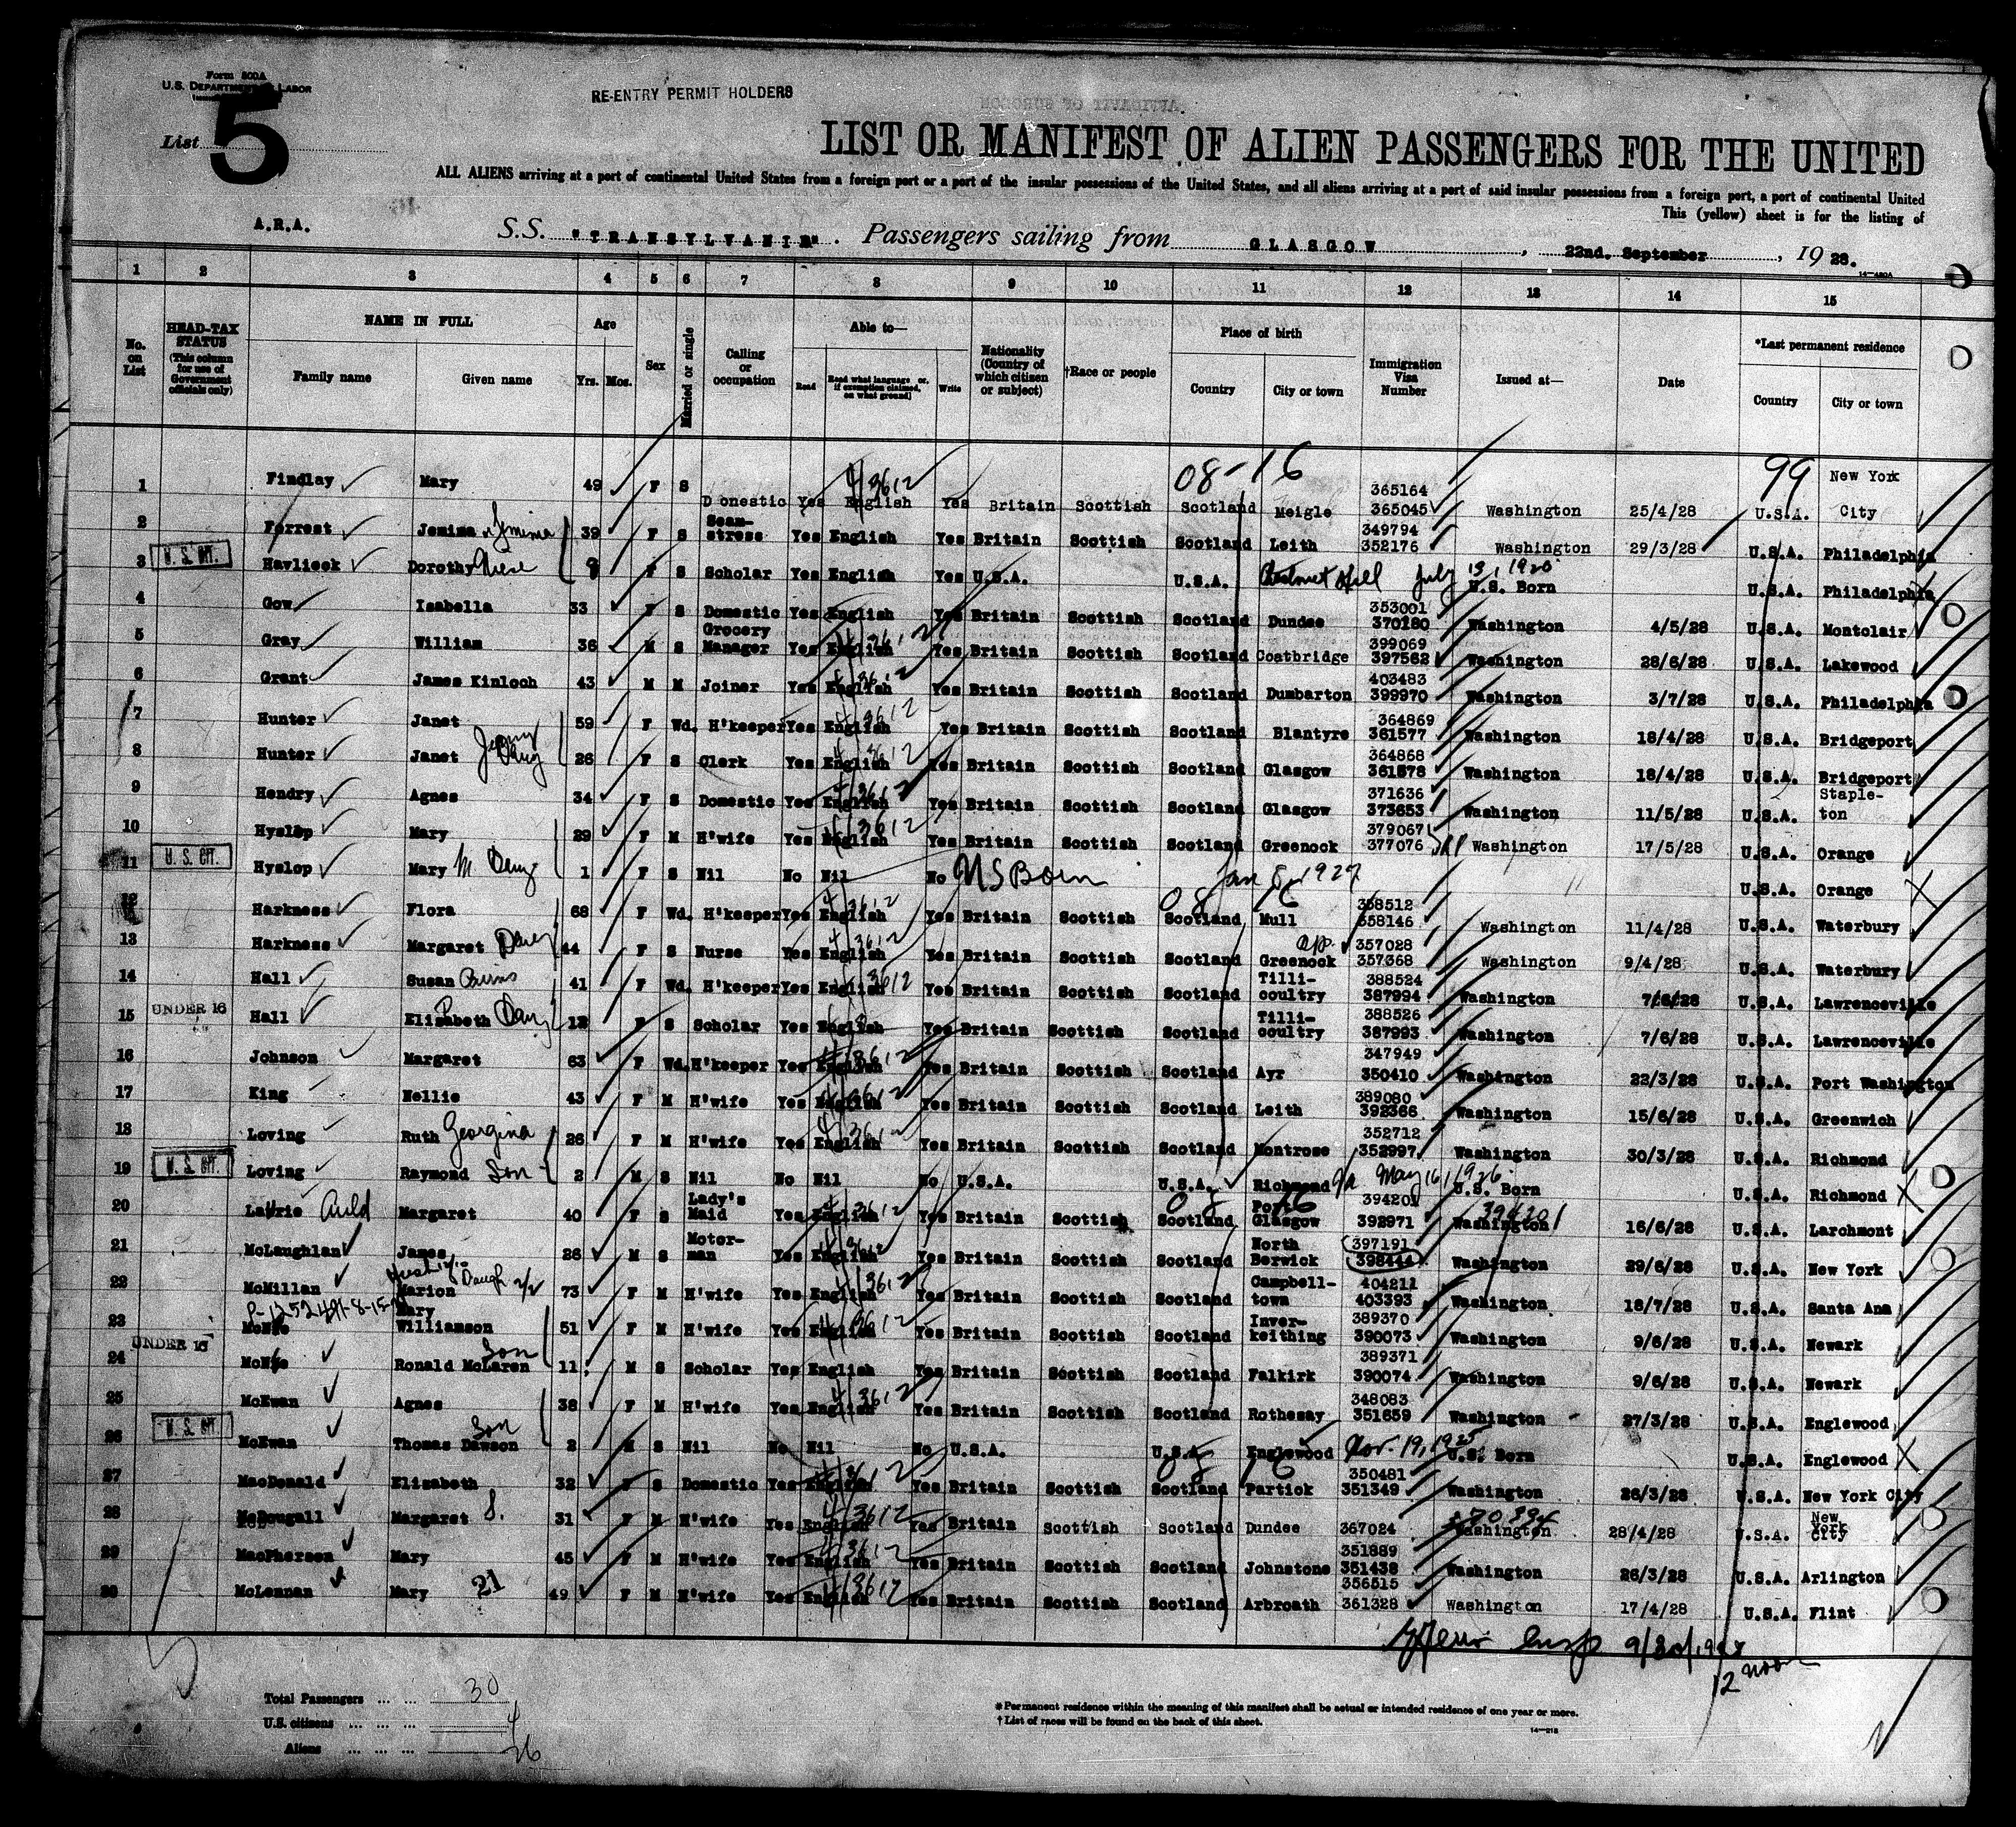 Form 500A
U.S. DEPARTMENT OF LABOR
RE-ENTRY PERMIT HOLDERS
List 5
LIST OR MANIFEST OF ALIEN PASSENGERS FOR THE UNITED
ALL ALIENS arriving at a port of continental United States from a foreign port or a port of the insular possessions of the United States, and all aliens arriving at a port of said insular possessions from a foreign port, a port of continental United
This (yellow) sheet is for the listing of
A.R.A. S.S. "TRANSYLVANIA". Passengers sailing from GLASGOW, 22nd. September, 1928.
14-480A
1 2 3 4 5 6 7 8 9 10 11 12 13 14 15
No. on List
HEAD-TAX STATUS (This column for use of Government officials only)
NAME IN FULL Family name Given name
Age Yrs. Mos.
Sex
Married or single
Calling or occupation
Able to— Read Read what language or, if exemption claimed, on what ground Write
Nationality (Country of which citizen or subject)
†Race or people
Place of birth Country City or town
Immigration Visa Number
Issued at—
Date
*Last permanent residence Country City or town
08-16 99
1 Findlay Mary 49 F S Domestic Yes English 43612 Yes Britain Scottish Scotland Meigle 365164 365045 Washington 25/4/28 U.S.A. New York City
2 Forrest Jemima Jemima 39 F S Seamstress Yes English Yes Britain Scottish Scotland Leith 349794 352176 Washington 29/3/28 U.S.A. Philadelphia
3 U.S. CIT. Havlicek Dorothy F S Scholar Yes English Yes U.S.A. U.S.A. Chestnut Hill July 13, 1920 U.S. Born U.S.A. Philadelphia
4 Gow Isabella 33 F S Domestic Yes English Yes Britain Scottish Scotland Dundee 353001 370280 Washington 4/5/28 U.S.A. Montclair
5 Gray William 36 M S Grocery Manager Yes English 43612 Yes Britain Scottish Scotland Coatbridge 399069 397562 Washington 28/6/28 U.S.A. Lakewood
6 Grant James Kinloch 43 M M Joiner Yes English 43612 Yes Britain Scottish Scotland Dumbarton 403483 399970 Washington 3/7/28 U.S.A. Philadelphia
7 Hunter Janet 59 F Wd. H'keeper Yes English 43612 Yes Britain Scottish Scotland Blantyre 364869 361577 Washington 18/4/28 U.S.A. Bridgeport
8 Hunter Janet Jenny Daug 26 F S Clerk Yes English 43612 Yes Britain Scottish Scotland Glasgow 364868 361578 Washington 18/4/28 U.S.A. Bridgeport
9 Hendry Agnes 34 F S Domestic Yes English 43612 Yes Britain Scottish Scotland Glasgow 371636 373653 Washington 11/5/28 U.S.A. Stapleton
10 Hyslop Mary 29 F M H'wife Yes English 43612 Yes Britain Scottish Scotland Greenock 379067 377076 Washington 17/5/28 U.S.A. Orange
11 U.S. CIT. Hyslop Mary M Daug 1 F S Nil No Nil No US Born Jan 8, 1927 U.S.A. Orange
12 Harkness Flora 68 F Wd. H'keeper Yes English 43612 Yes Britain Scottish 08 16 Scotland Mull 358512 358146 Washington 11/4/28 U.S.A. Waterbury
13 Harkness Margaret Daug 44 F S Nurse Yes English 43612 Yes Britain Scottish Scotland Greenock 357028 357368 Washington 9/4/28 U.S.A. Waterbury
14 Hall Susan 41 F Wd. H'keeper Yes English 43612 Yes Britain Scottish Scotland Tillicoultry 388524 387994 Washington 7/6/28 U.S.A. Lawrenceville
15 UNDER 16 Hall Elizabeth Daug 12 F S Scholar Yes English Yes Britain Scottish Scotland Tillicoultry 388526 387993 Washington 7/6/28 U.S.A. Lawrenceville
16 Johnson Margaret 63 F Wd. H'keeper Yes English 43612 Yes Britain Scottish Scotland Ayr 347949 350410 Washington 22/3/28 U.S.A. Port Washington
17 King Nellie 43 F M H'wife Yes English 43612 Yes Britain Scottish Scotland Leith 389080 392366 Washington 15/6/28 U.S.A. Greenwich
18 Loving Ruth Georgina 26 F M H'wife Yes English 43612 Yes Britain Scottish Scotland Montrose 352712 352997 Washington 30/3/28 U.S.A. Richmond
19 U.S. CIT. Loving Raymond Son 2 M S Nil No Nil No U.S.A. U.S.A. Richmond Va May 16, 1926 U.S. Born U.S.A. Richmond
20 Lawrie Auld Margaret 40 F S Lady's Maid Yes English 43612 Yes Britain Scottish 08 16 Scotland Port Glasgow 394201 392971 394201 Washington 16/6/28 U.S.A. Larchmont
21 McLaughlan James 26 M S Motorman Yes English 43612 Yes Britain Scottish Scotland North Berwick 397191 398444 Washington 29/6/28 U.S.A. New York
22 McMillan Marion Daugh 73 F M H'wife Yes English 43612 Yes Britain Scottish Scotland Campbelltown 404211 403393 Washington 18/7/28 U.S.A. Santa Ana
23 McNee Mary Williamson 51 F M H'wife Yes English 43612 Yes Britain Scottish Scotland Inverkeithing 389370 390073 Washington 9/6/28 U.S.A. Newark
24 UNDER 16 McNee Ronald McLaren Son 11 M S Scholar Yes English Yes Britain Scottish Scotland Falkirk 389371 390074 Washington 9/6/28 U.S.A. Newark
25 McEwan Agnes 38 F M H'wife Yes English 43612 Yes Britain Scottish Scotland Rothesay 348083 351659 Washington 27/3/28 U.S.A. Englewood
26 U.S. CIT. McEwan Thomas Dawson Son 2 M S Nil No Nil No U.S.A. U.S.A. Englewood Nov. 19, 1925 U.S. Born U.S.A. Englewood
27 MacDonald Elizabeth 32 F S Domestic Yes English 43612 Yes Britain Scottish 08 16 Scotland Partick 350481 351349 Washington 26/3/28 U.S.A. New York City
28 McDougall Margaret S. 31 F M H'wife Yes English 43612 Yes Britain Scottish Scotland Dundee 367024 370394 Washington 28/4/28 U.S.A. New York City
29 MacPherson Mary 45 F M H'wife Yes English 43612 Yes Britain Scottish Scotland Johnstone 351889 351438 Washington 26/3/28 U.S.A. Arlington
30 McLennan Mary 21 49 F M H'wife Yes English 43612 Yes Britain Scottish Scotland Arbroath 356515 361328 Washington 17/4/28 U.S.A. Flint
Insp 9/30/1928
12 noon
Total Passengers ... ... 30
U.S. citizens ... ... ... 4
Aliens ... ... ... 26
*Permanent residence within the meaning of this manifest shall be actual or intended residence of one year or more.
†List of races will be found on the back of this sheet.
14-218